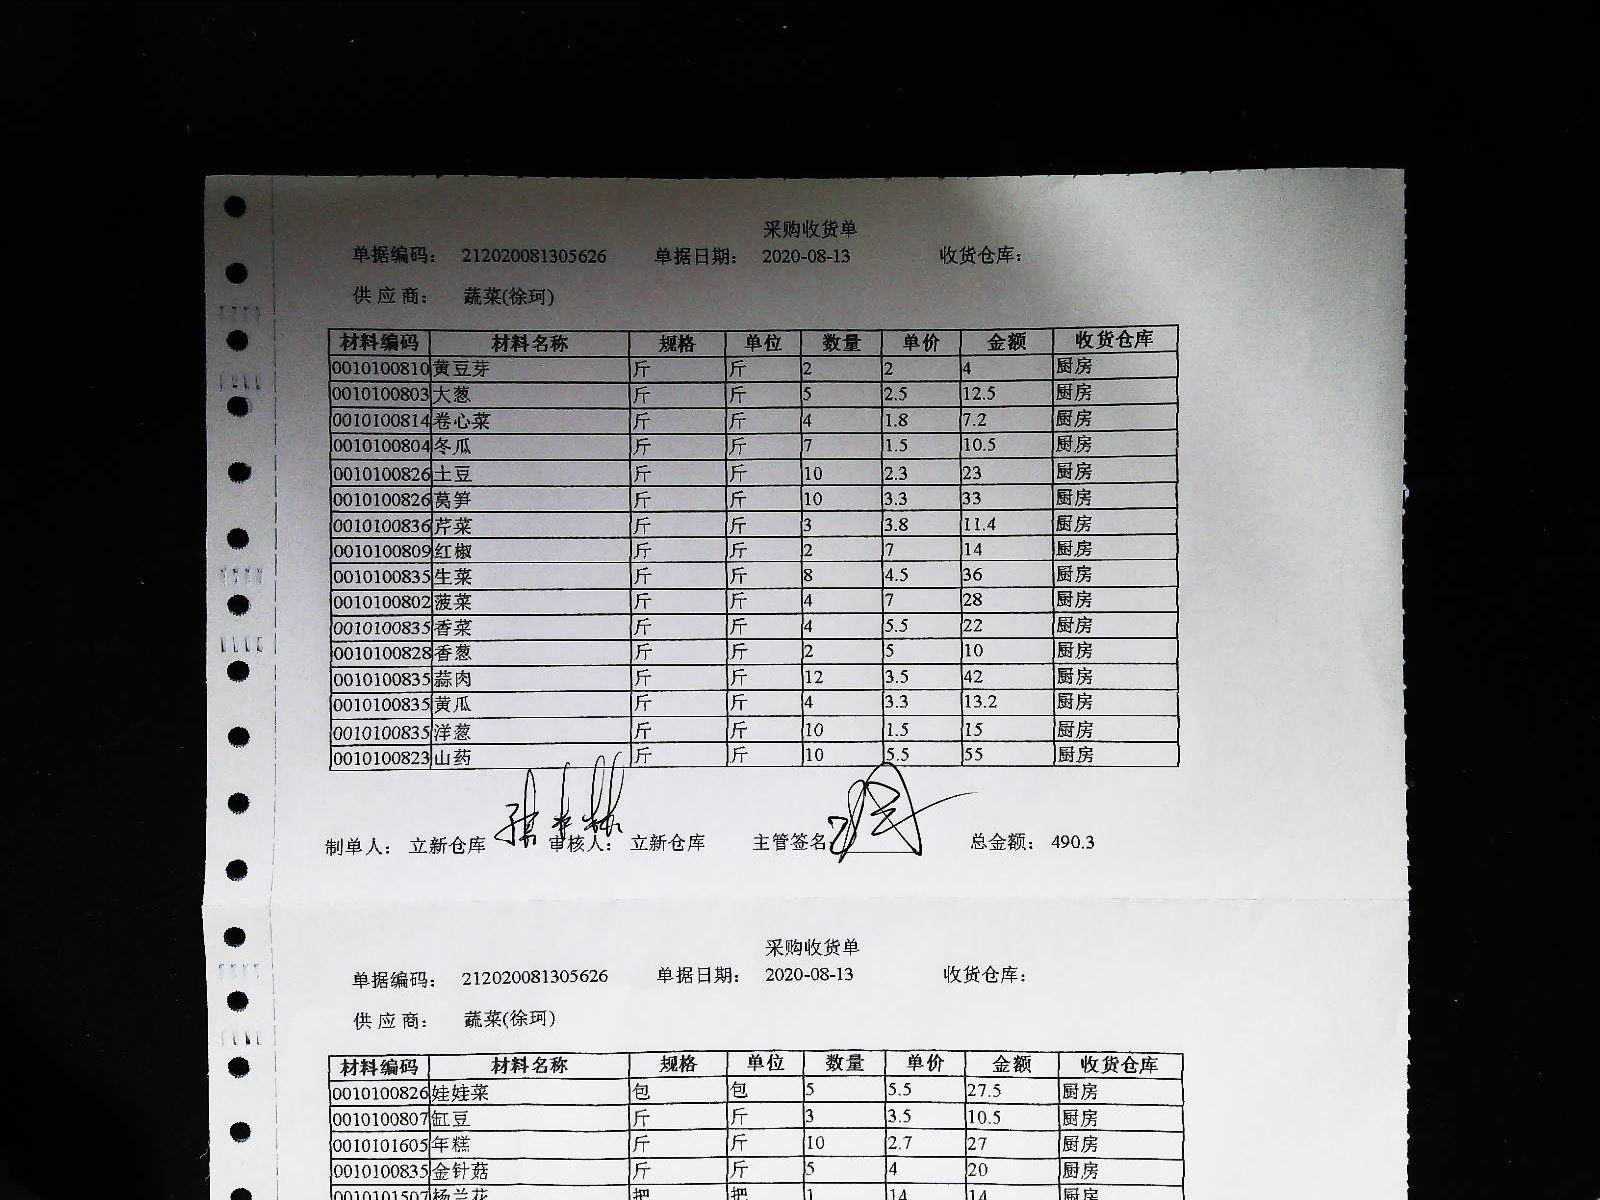 采购收货单
单据编码： 212020081305626 单据日期： 2020-08-13 收货仓库：
供 应 商： 蔬菜(徐珂)
材料编码 材料名称 规格 单位 数量 单价 金额 收货仓库
0010100810 黄豆芽 斤 斤 2 2 4 厨房
0010100803 大葱 斤 斤 5 2.5 12.5 厨房
0010100814 卷心菜 斤 斤 4 1.8 7.2 厨房
0010100804 冬瓜 斤 斤 7 1.5 10.5 厨房
0010100826 土豆 斤 斤 10 2.3 23 厨房
0010100826 莴笋 斤 斤 10 3.3 33 厨房
0010100836 芹菜 斤 斤 3 3.8 11.4 厨房
0010100809 红椒 斤 斤 2 7 14 厨房
0010100835 生菜 斤 斤 8 4.5 36 厨房
0010100802 菠菜 斤 斤 4 7 28 厨房
0010100835 香菜 斤 斤 4 5.5 22 厨房
0010100828 香葱 斤 斤 2 5 10 厨房
0010100835 蒜肉 斤 斤 12 3.5 42 厨房
0010100835 黄瓜 斤 斤 4 3.3 13.2 厨房
0010100835 洋葱 斤 斤 10 1.5 15 厨房
0010100823 山药 斤 斤 10 5.5 55 厨房
制单人： 立新仓库 审核人： 立新仓库 主管签名: 总金额： 490.3
采购收货单
单据编码： 212020081305626 单据日期： 2020-08-13 收货仓库：
供 应 商： 蔬菜(徐珂)
材料编码 材料名称 规格 单位 数量 单价 金额 收货仓库
0010100826 娃娃菜 包 包 5 5.5 27.5 厨房
0010100807 缸豆 斤 斤 3 3.5 10.5 厨房
0010101605 年糕 斤 斤 10 2.7 27 厨房
0010100835 金针菇 斤 斤 5 4 20 厨房
0010101507 杨兰花 把 把 1 14 14 厨房